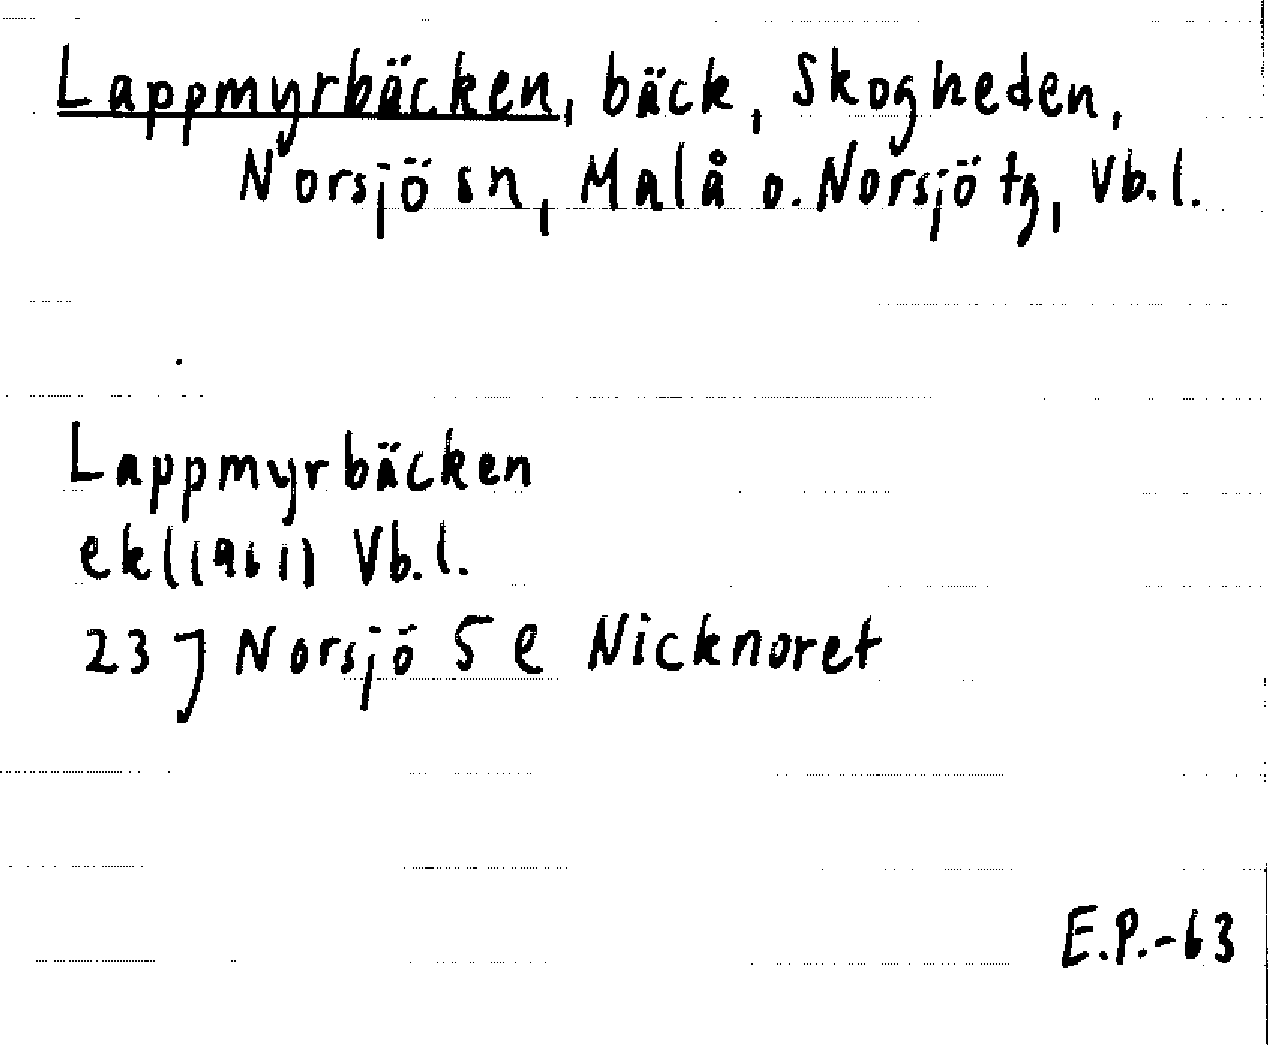 Lappmyrbäcken, bäck, Skogheden,
Norsjö sn, Malå o. Norsjö tg, Vb. l.
Lappmyrbäcken
ekl(1961) Vb. l.
23 J Norsjö 5 e Nicknoret
E.P.-63